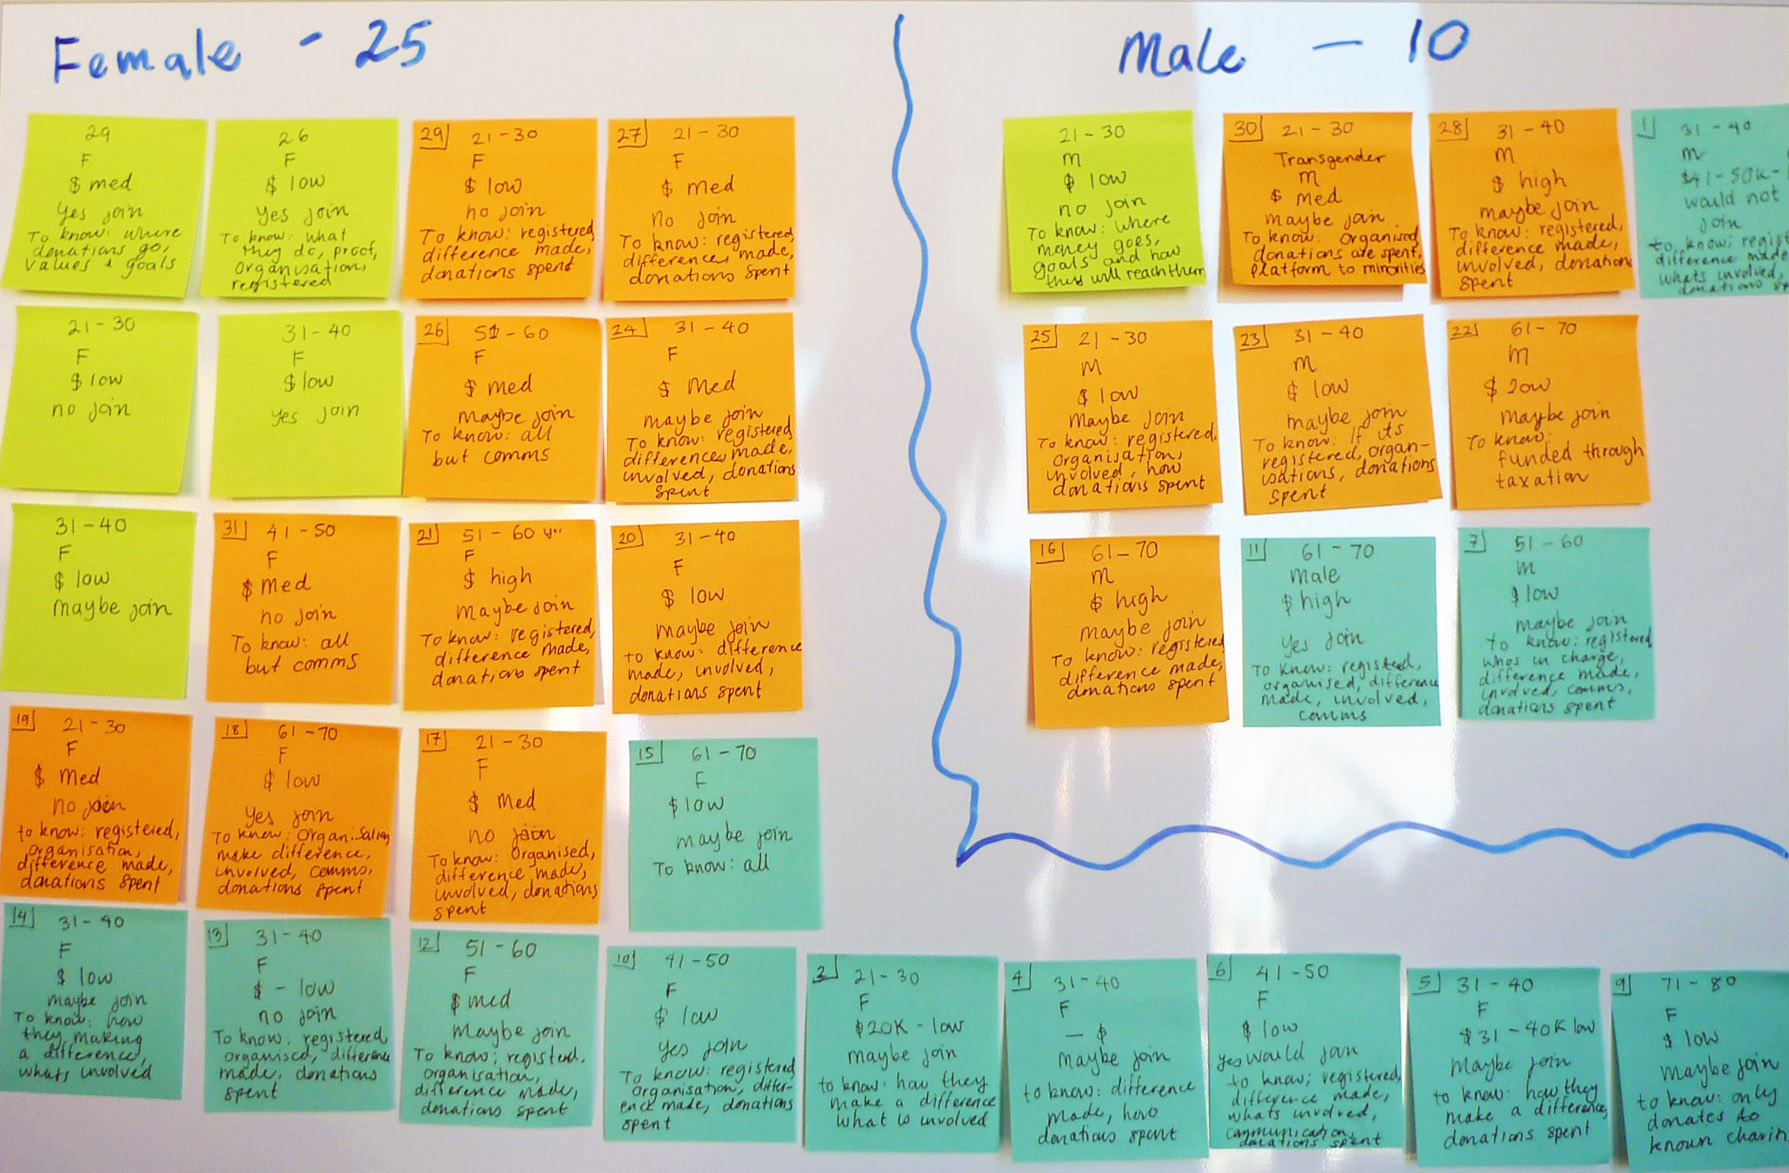 Female - 25
29
F
$ med
Yes join
To know: where
donations go,
values + goals
26
F
$ low
Yes join
To know: what
they do, proof,
organisation,
registered
29
21-30
F
$ low
no join
To know: registered,
difference made,
donations spent
27
21-30
F
$ med
no join
To know: registered,
differences made,
donations spent
21-30
F
$ low
no join
31-40
F
$ low
yes join
26
51-60
F
$ med
Maybe join
To know: all
but comms
24
31-40
F
$ Med
maybe join
To know: registered,
differences made,
involved, donations
spent
31-40
F
$ low
maybe join
31
41-50
F
$ med
no join
To know: all
but comms
21
51-60
F
$ high
maybe join
To know: registered,
difference made,
donations spent
20
31-40
F
$ low
maybe join
to know: difference
made, involved,
donations spent
19
21-30
F
$ med
no join
to know: registered,
organisation,
difference made,
donations spent
18
61-70
F
$ low
Yes join
To know: organisation,
make difference,
involved, comms,
donations spent
17
21-30
F
$ med
no join
To know: organised,
difference made,
involved, donations
spent
15
61-70
F
$ low
maybe join
To know: all
14
31-40
F
$ low
maybe join
To know: how
they making
a difference,
whats involved
13
31-40
F
$ - low
no join
To know: registered,
organised, difference
made, donations
spent
12
51-60
F
$ med
Maybe join
To know; registerd,
organisation,
difference made,
donations spent
10
41-50
F
$ low
yes join
To know: registered
organisation, differ-
ence made, donations
spent
21-30
F
$20K - low
maybe join
to know: how they
make a difference
what is involved
4
31-40
F
- $
maybe join
to know: difference
made, how
donations spent
6
41-50
F
$ low
yes would join
to know; registered,
difference made,
whats involved,
communication,
donations spent
5
31-40
F
$31-40K low
Maybe join
to know: how they
make a difference,
donations spent
9
71-80
F
$ low
maybe join
to know: only
donates to
known charit
Male - 10
21-30
M
$ low
no join
To know: where
money goes,
goals and how
they will reach them
30
21-30
Transgender
M
$ med
maybe join
To know: organised,
donations are spent,
platform to minorities
28
31-40
M
$ high
maybe join
To know: registered,
difference made,
involved, donations
spent
1
31-40
M
$41-50K-
would not
join
to know; regist
difference made
whats involved,
donations sp
25
21-30
M
$ low
Maybe join
To know: registered,
organisation,
involved, how
donations spent
23
31-40
M
$ low
maybe join
To know: If its
registered, organ-
isations, donations
spent
22
61-70
M
$ low
maybe join
To know:
funded through
taxation
16
61-70
M
$ high
maybe join
To know: registered
difference made,
donations spent
11
61-70
Male
$ high
yes join
To know: registed,
organised, difference
made, involved,
comms
7
51-60
M
$ low
maybe join
to know: registered,
whos in charge,
difference made,
involved, comms,
donations spent